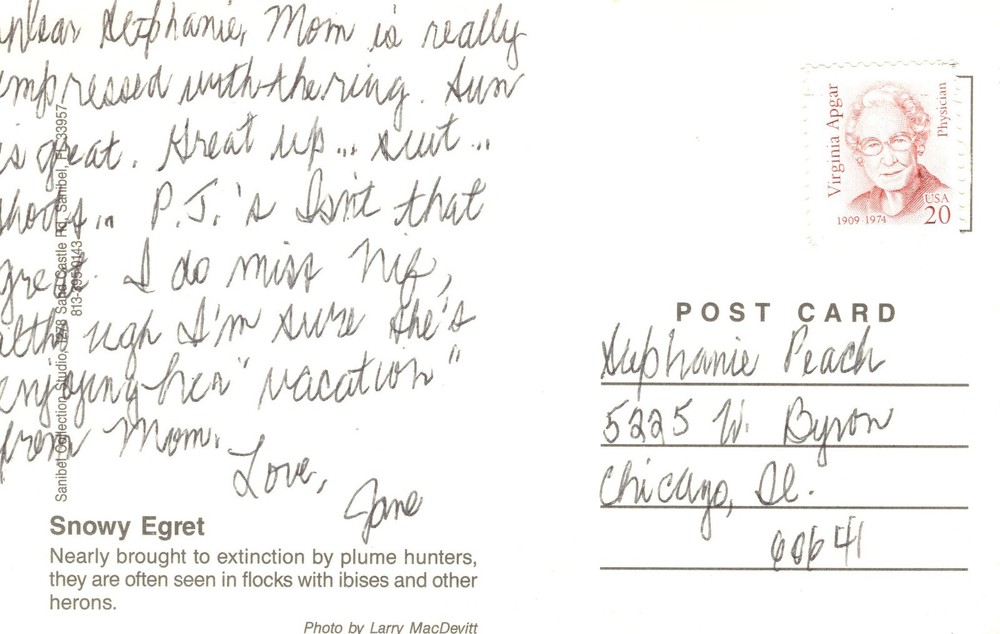 Dear Stephanie, Mom is really
impressed with the ring. Sun
is great. Great up... sut...
shots... P.J.'s Isn't that
great. I do miss Nif,
although I'm sure she's
enjoying her "vacation"
from Mom.
Love,
Jane
Sanibel Collection Studio, 1278 Sand Castle Rd, Sanibel, FL 33957
813-395-0143
Snowy Egret
Nearly brought to extinction by plume hunters,
they are often seen in flocks with ibises and other
herons.
Photo by Larry MacDevitt
Virginia Apgar
Physician
1909-1974
USA
20
POST CARD
Stephanie Peach
5225 W. Byron
Chicago, Il.
60641